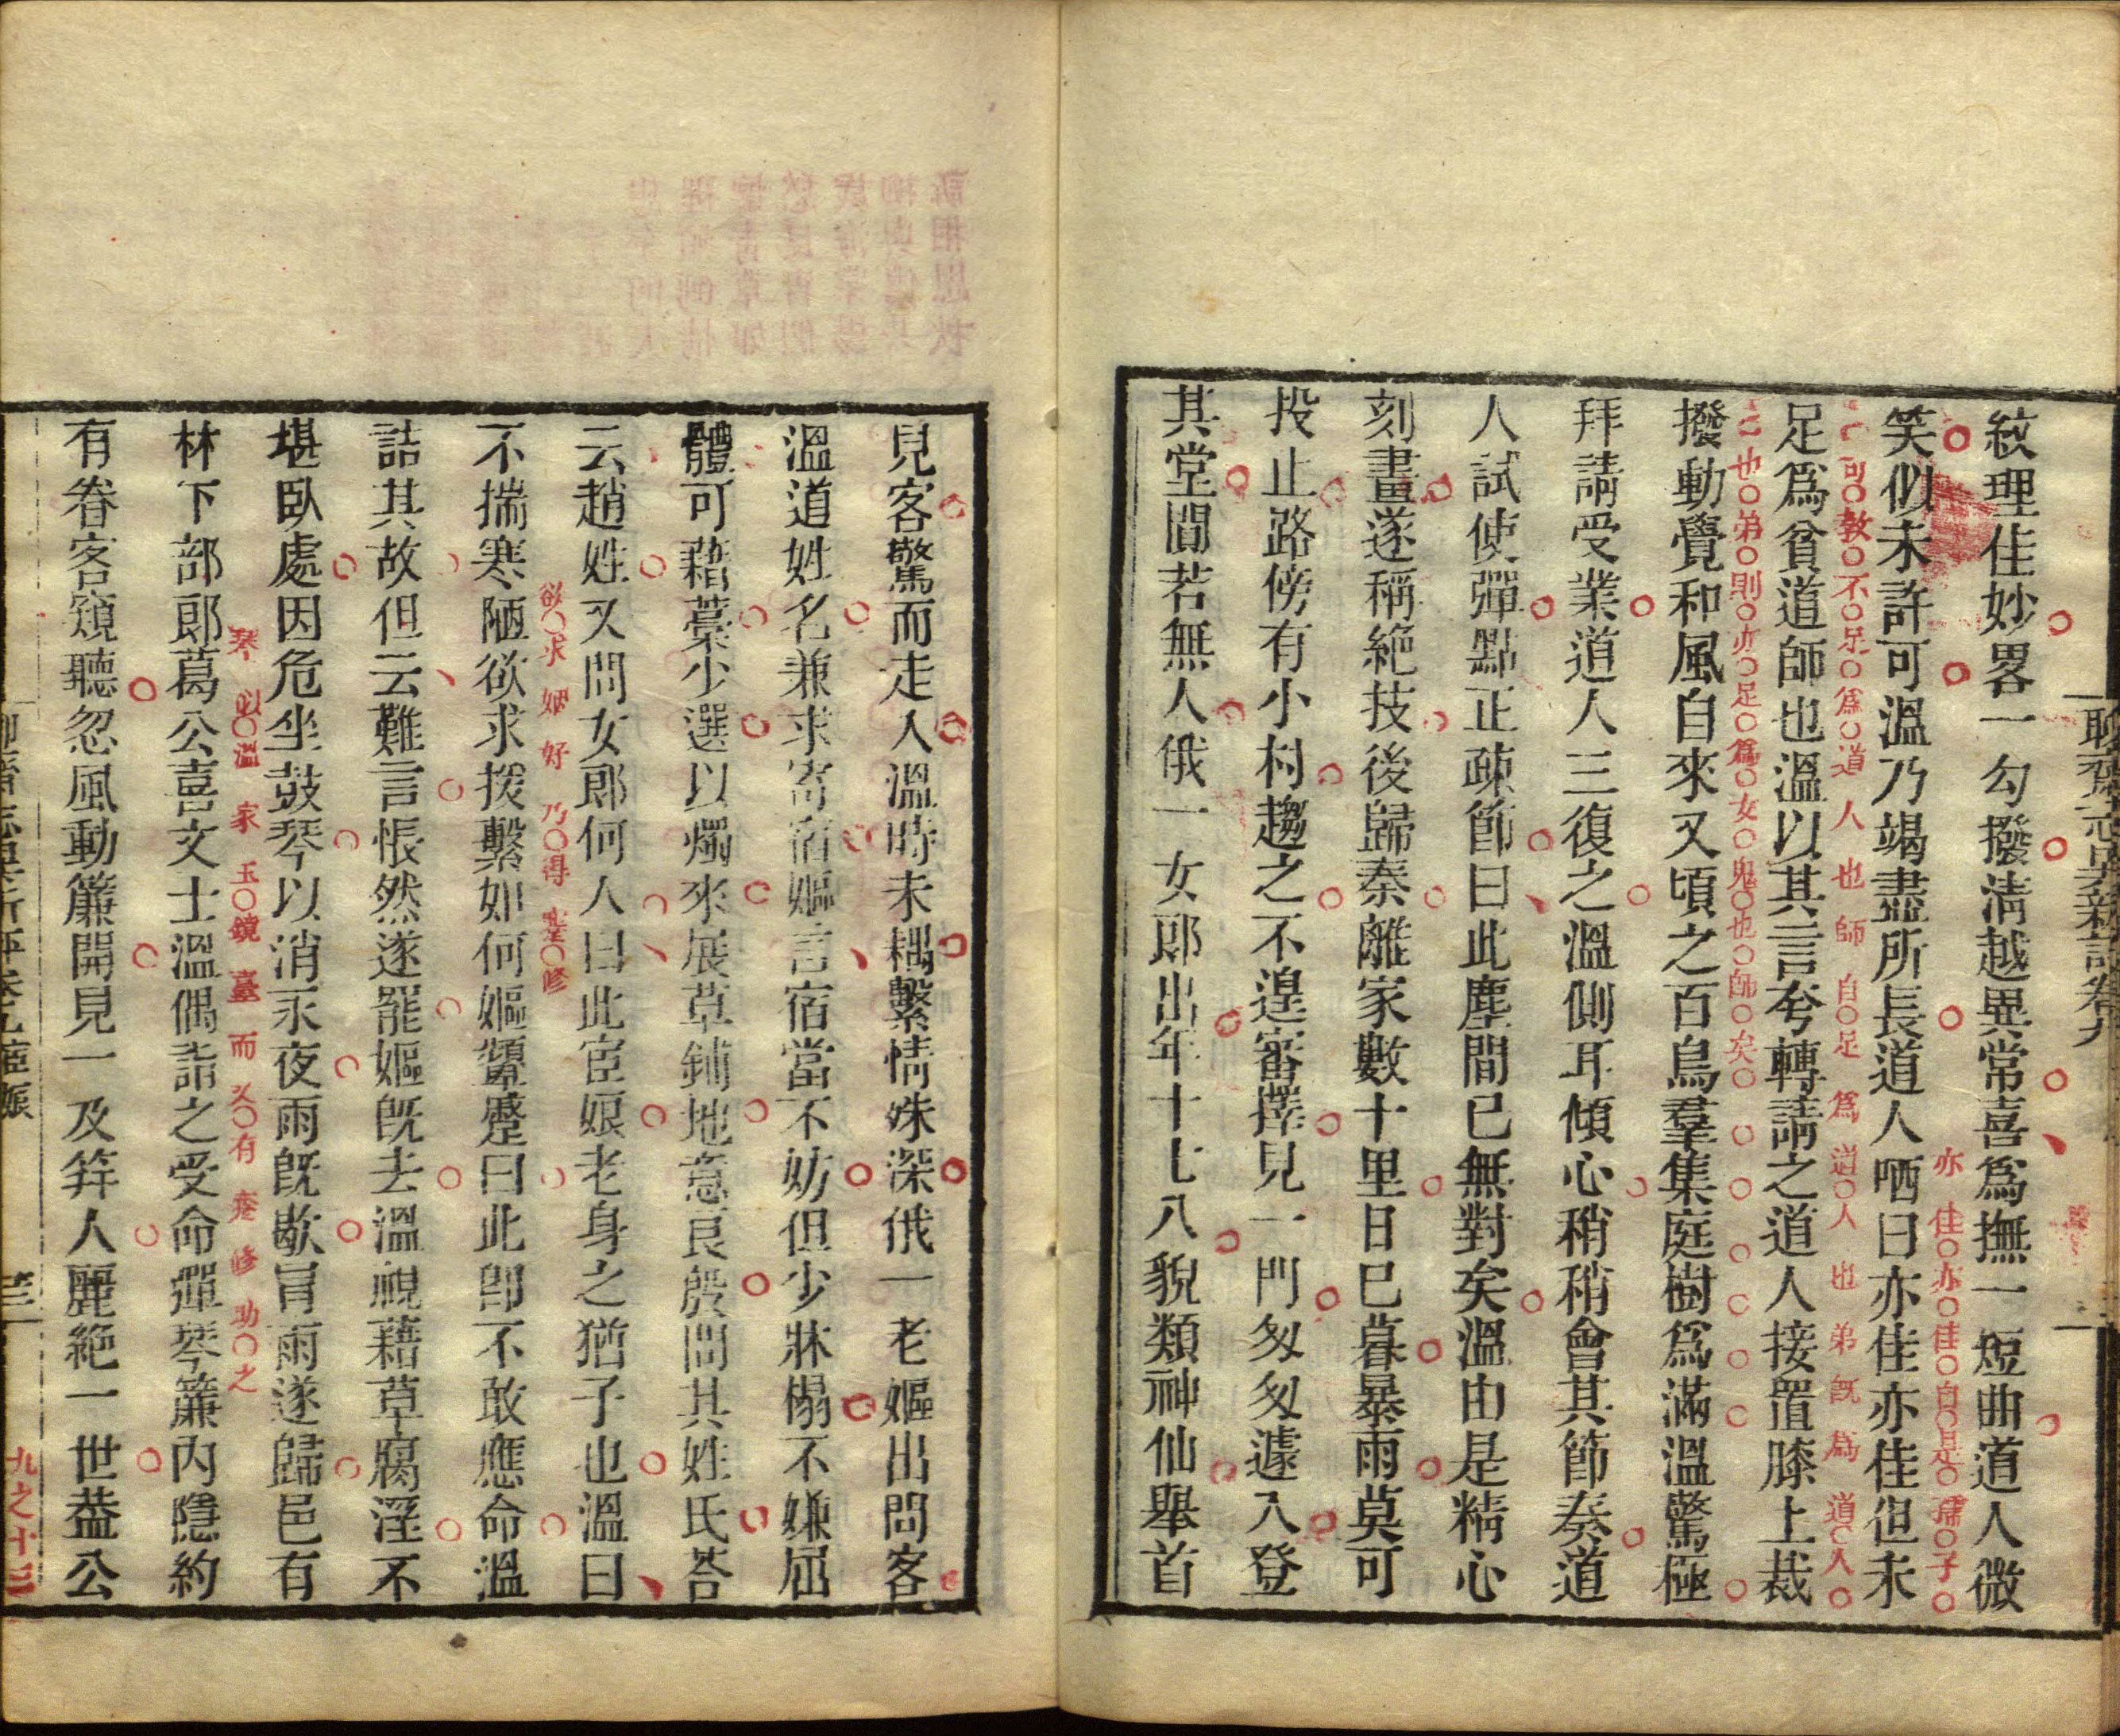 聊齋志異新評卷九
紋理佳妙畧一勾撥淸越異常喜爲撫一短曲道人微
笑似未許可溫乃竭盡所長道人哂曰亦佳亦佳但未
亦佳亦佳自是孺子
足爲貧道師也溫以其言夸轉請之道人接置膝上裁
可敎不足爲道人也師自足爲道人也弟旣爲道人
撥動覺和風自來又頃之百鳥羣集庭樹爲滿溫驚極
也弟則亦足爲女鬼也師矣
拜請受業道人三復之溫側耳傾心稍稍會其節奏道
人試使彈點正疎節曰此塵間已無對矣溫由是精心
刻畫遂稱絕技後歸秦離家數十里日已暮暴雨莫可
投止路傍有小村趨之不遑審擇見一門匆匆遽入登
其堂閴若無人俄一女郎出年十七八貌類神仙舉首
見客驚而走入溫時未耦繫情殊深俄一老嫗出問客
溫道姓名兼求寄宿嫗言宿當不妨但少牀榻不嫌屈
體可藉藁少選以燭來展草鋪地意良殷問其姓氏荅
云趙姓又問女郎何人曰此宦娘老身之猶子也溫曰
不揣寒陋欲求援繫如何嫗顰蹙曰此卽不敢應命溫
欲求姻好乃得蹇修
詰其故但云難言悵然遂罷嫗旣去溫視藉草腐溼不
堪臥處因危坐鼓琴以消永夜雨旣歇冒雨遂歸邑有
林下部郎葛公喜文士溫偶詣之受命彈琴簾內隱約
琴似溫家玉鏡臺而又有蹇修功之
有眷客窺聽忽風動簾開見一及笄人麗絕一世葢公
聊齋志異新評卷九宦娘
九之十三